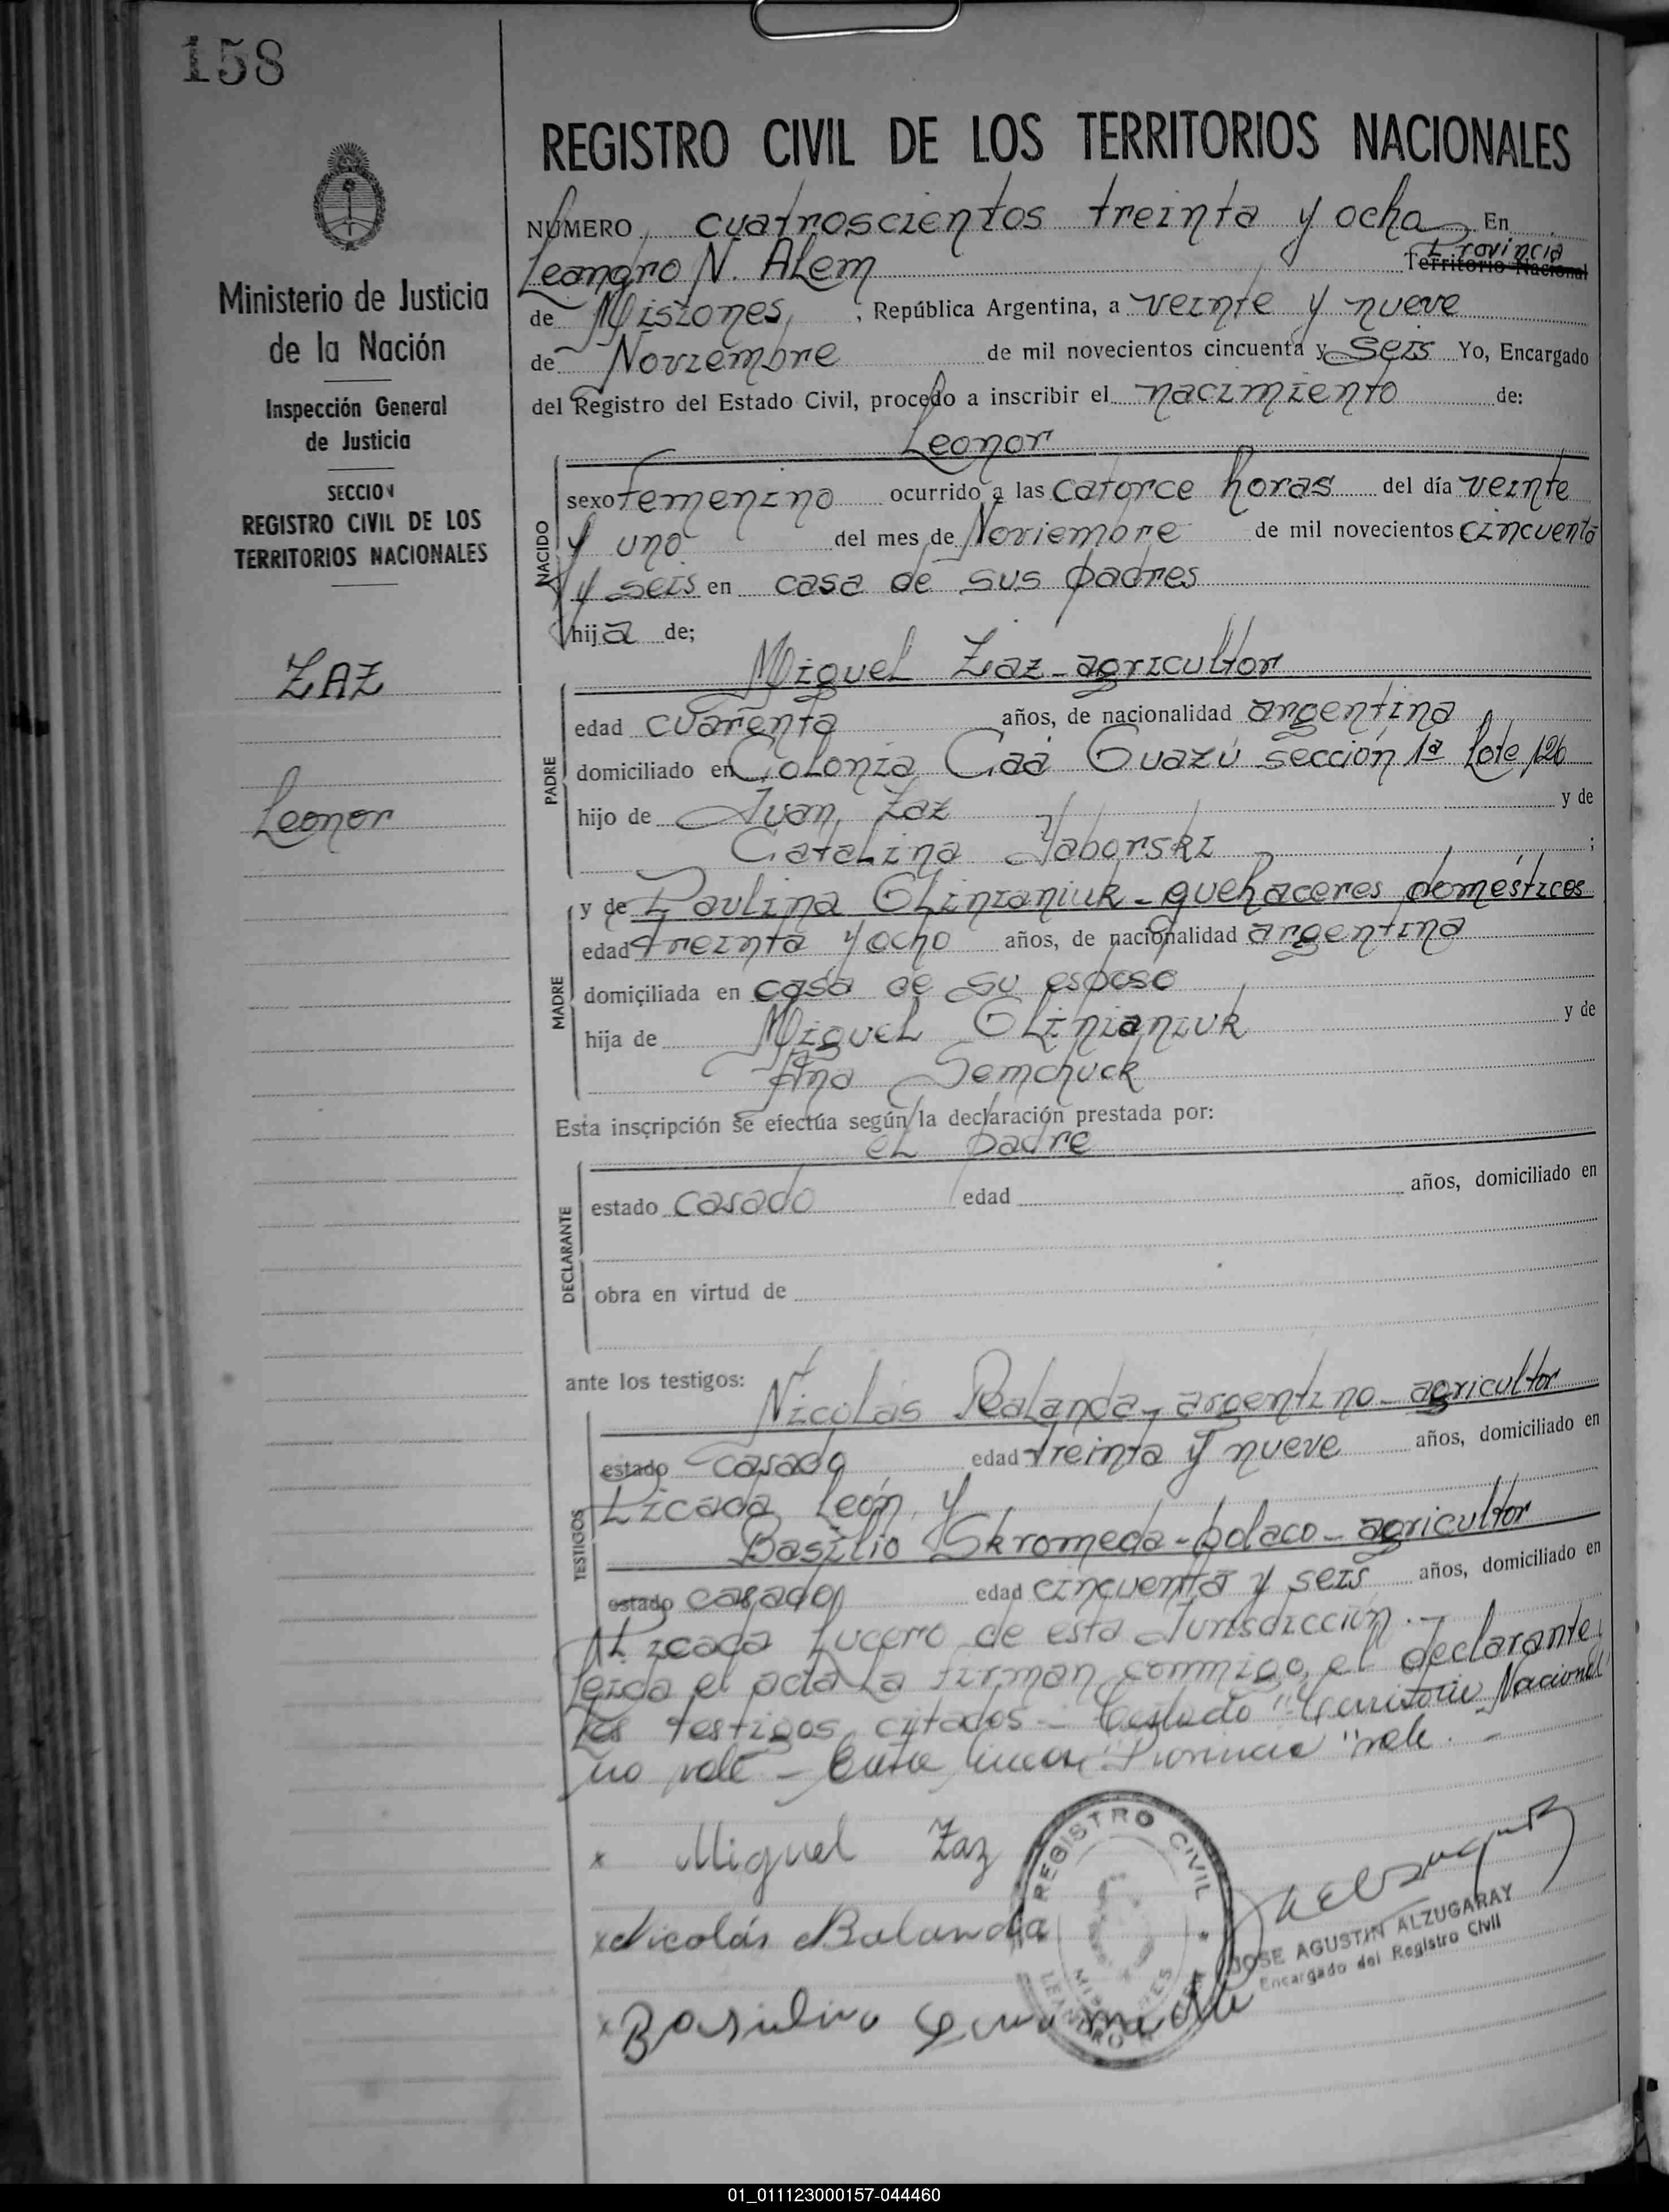 158
REGISTRO CIVIL DE LOS TERRITORIOS NACIONALES
NÚMERO cuatroscientos treinta y ocho En
Leandro N. Alem Provincia Territorio Nacional
de Misiones, , República Argentina, a veinte y nueve
de Noviembre de mil novecientos cincuenta y seis Yo, Encargado
del Registro del Estado Civil, procedo a inscribir el nacimiento de:
Leonor
NACIDO
sexo femenino ocurrido a las catorce horas del día veinte
y uno del mes de Noviembre de mil novecientos cincuenta
y seis en casa de sus padres
hija de;
Miguel Zaz - agricultor
PADRE
edad cuarenta años, de nacionalidad argentina
domiciliado en Colonia Caá Guazú sección 1ª Lote 126
hijo de Juan Zaz y de
Catalina Jaborski ;
MADRE
y de Paulina Oliniäniuk - quehaceres domésticos
edad treinta y ocho años, de nacionalidad argentina
domiciliada en casa de su esposo
hija de Miguel Olinianiuk y de
Ana Semchuck
Esta inscripción se efectúa según la declaración prestada por:
el padre
DECLARANTE
estado casado edad años, domiciliado en
obra en virtud de
ante los testigos:
Nicolás Balanda - argentino - agricultor
TESTIGOS
estado casado edad treinta y nueve años, domiciliado en
Picada León, y
Basilio Skromeda - polaco - agricultor
estado casado edad cincuenta y seis años, domiciliado en
Picada Lucero de esta Jurisdicción. -
Leída el acta La firman conmigo, el declarante
Los testigos citados - Testado "Territorio Nacional
no vale - Entre lineas "Provincia" vale. -
x Miguel Zaz
x Nicolás Balanda
x Basilio
REGISTRO CIVIL
MISIONES
LEANDRO N. ALEM
JOSE AGUSTIN ALZUGARAY
Encargado del Registro Civil
Ministerio de Justicia
de la Nación
Inspección General
de Justicia
SECCION
REGISTRO CIVIL DE LOS
TERRITORIOS NACIONALES
ZAZ
Leonor
01_011123000157-044460